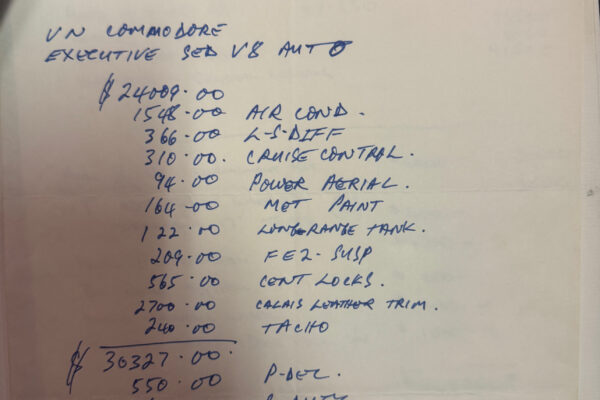 VN COMMODORE
EXECUTIVE SED V8 AUTO
$24009.00
1548.00 AIR COND.
366.00 L-S-DIFF
310.00. CRUISE CONTRAL.
94.00 POWER AERIAL.
164.00 MET PAINT
122.00 LONG-RANGE TANK.
209.00 FE2-SUSP
565.00 CENT LOCKS.
2700.00 CALAIS LEATHER TRIM.
240.00 TACHO
$ 30327.00.
550.00 P-DEL.